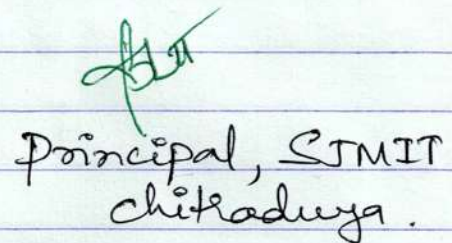 Principal, SJMIT
chitradurga.